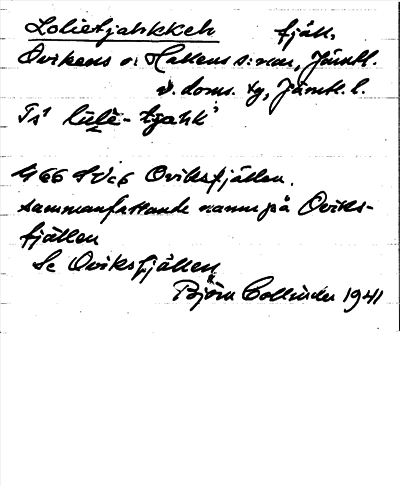 Lolietjahkkeh fjäll.
Ovikens o. Hallens s:nar, Jämtl.
v. doms. tg, Jämtl. l.
Ts¹ lulìe-tjahk'
G66 SVc6 Oviksfjällen.
sammanfattande namn på Oviks-
fjällen
Se Oviksfjällen
Björn Collinder 1941